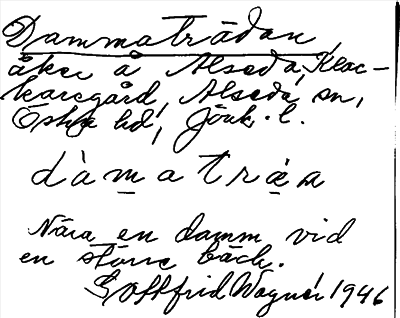 Dammaträdan,
åker å Alseda, Klac-
karegård, Alseda sn,
Östra hd, Jönk. l.
dàmatræ̀n
Nära en damm vid
en större bäck.
Gottfrid Wagnér 1946